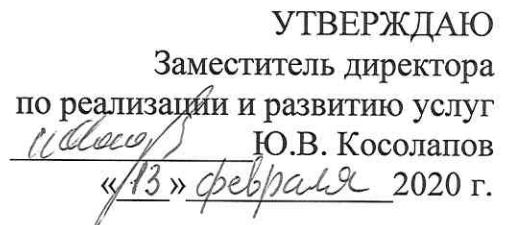 УТВЕРЖДАЮ
Заместитель директора
по реализации и развитию услуг
Ю.В. Косолапов
«13» февраля 2020 г.